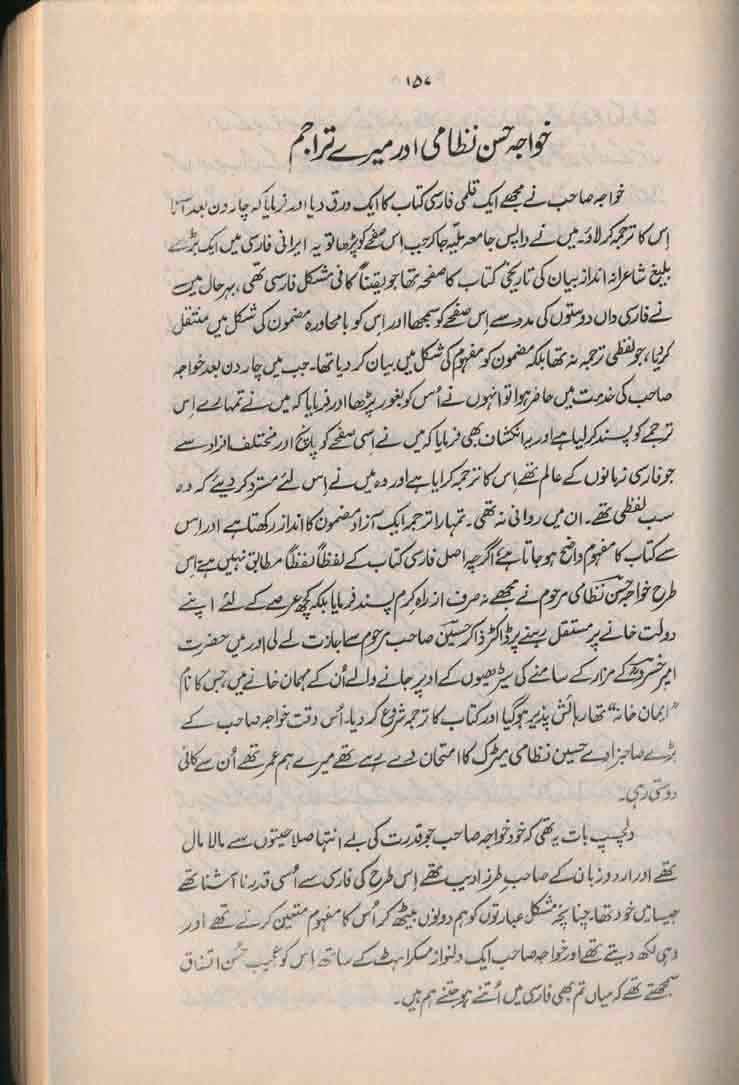 ۱۵۷
خواجہ حسن نظامی اور میرے تراجم
خواجہ صاحب نے مجھے ایک قلمی فارسی کتاب کا ایک ورق دیا اور فرمایا کہ چار دن بعد آنا
اِس کا ترجمہ کر لاؤ۔ میں نے واپس جامعہ ملیّہ جا کر جب اس صفحے کو پڑھا تو یہ ایرانی فارسی میں ایک بڑے
بلیغ شاعرانہ اندازِ بیان کی تاریخی کتاب کا صفحہ تھا جو یقیناً کافی مشکل فارسی تھی، بہر حال میں
نے فارسی داں دوستوں کی مدد سے اِس صفحے کو سمجھا اور اِس کو بامحاورہ مضمون کی شکل میں منتقل
کر دیا، جو لفظی ترجمہ نہ تھا بلکہ مضمون کو مفہوم کی شکل میں بیان کر دیا تھا۔ جب میں چار دن بعد خواجہ
صاحب کی خدمت میں حاضر ہوا تو انہوں نے اُس کو بغور پڑھا اور فرمایا کہ میں نے تمہارے اِس
ترجمے کو پسند کر لیا ہے اور یہ انکشاف بھی فرمایا کہ میں نے اِسی صفحے کو پانچ اور مختلف افراد سے
جو فارسی زبانوں کے عالم تھے اِس کا ترجمہ کرایا ہے اور وہ میں نے اِس لئے مسترد کر دیئے کہ وہ
سب لفظی تھے۔ ان میں روانی نہ تھی۔ تمہارا ترجمہ ایک آزاد مضمون کا انداز رکھتا ہے اور اس
سے کتاب کا مفہوم واضح ہو جاتا ہے اگرچہ اصل فارسی کتاب کے لفظاً لفظاً مطابق نہیں ہے اِس
طرح خواجہ حسن نظامی مرحوم نے مجھے نہ صرف از راہِ کرم پسند فرمایا بلکہ کچھ عرصے کے لئے اپنے
دولت خانے پر مستقل رہنے پر ڈاکٹر ذاکر حسین صاحب مرحوم سے اجازت لے لی اور میں حضرت
امیر خسروؒ کے مزار کے سامنے کی سیڑھیوں کے اوپر جانے والے اُن کے مہمان خانے میں، جس کا نام
"ایمان خانہ" تھا رہائش پذیر ہو گیا اور کتاب کا ترجمہ شروع کر دیا۔ اُس وقت خواجہ صاحب کے
بڑے صاحبزادے حسین نظامی میٹرک کا امتحان دے رہے تھے میرے ہم عمر تھے اُن سے کافی
دوستی رہی۔
دلچسپ بات یہ تھی کہ خود خواجہ صاحب جو قدرت کی بے انتہا صلاحیتوں سے مالا مال
تھے اور اردو زبان کے صاحبِ طرز ادیب تھے اِس طرح کی فارسی سے اُسی قدر نا آشنا تھے
جیسا میں خود تھا۔ چنانچہ مشکل عبارتوں کو ہم دونوں بیٹھ کر اُس کا مفہوم متعین کرتے تھے اور
وہی لکھ دیتے تھے اور خواجہ صاحب ایک دلنواز مسکراہٹ کے ساتھ اِس کو عجیب حُسنِ اتفاق
سمجھتے تھے کہ میاں تم بھی فارسی میں اُتنے ہو جتنے ہم ہیں۔